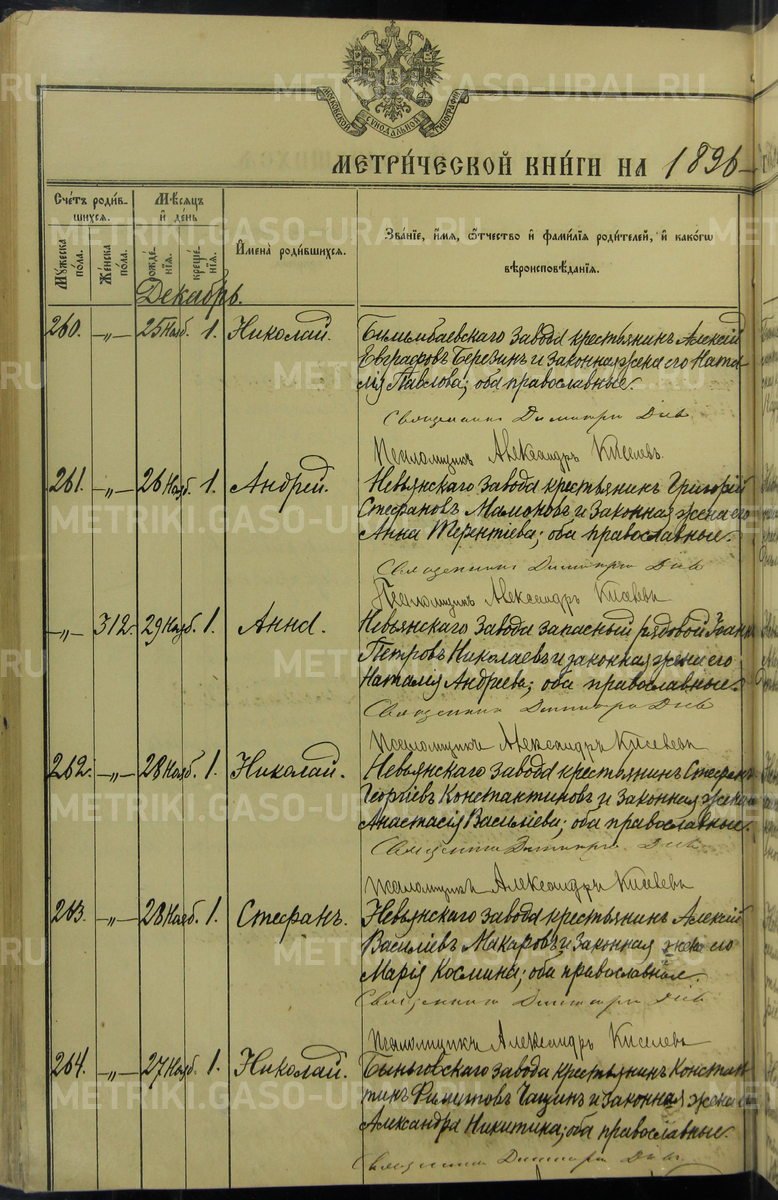 МОСКОВСКОЙ СѴНОДАЛЬНОЙ ТИПОГРАФІИ
МЕТРИ́ЧЕСКОЙ КНИ́ГИ НА 1896
Сче́тъ роди́в-
шихся.
Мꙋ́жеска по́ла.
Же́нска по́ла.
Мѣ́сяцъ
и҆ де́нь
рожде́-
нїѧ.
креще́-
нїѧ.
И҆мена̀ роди́вшихся.
Зва́нїе, и҆́мѧ, ѻ҆́тчество и҆ фами́лїѧ роди́телей, и҆ како́гѡ
вѣроисповѣ́данїѧ.
Декабрь.
260. —„— 25 Нояб. 1. Николай. Билимбаевскаго завода крестьянинъ Алексій
Евграфовъ Березинъ и законная жена его Ната-
лія Павлова; оба православные.
Священникъ Димитрій
Псаломщикъ Александръ Киселевъ
261. —„— 26 Нояб. 1. Андрей. Невьянскаго завода крестьянинъ Григорій
Стефановъ Мамоновъ и законная жена его
Анна Терентіева; оба православные.
Священникъ Димитрій
Псаломщикъ Александръ Киселевъ
—„— 312. 29 Нояб. 1. Анна. Невьянскаго завода запасный рядовой Іоаннъ
Петровъ Николаевъ и законная жена его
Наталія Андреева; оба православные.
Священникъ Димитрій
Псаломщикъ Александръ Киселевъ
262. —„— 28 Нояб. 1. Николай. Невьянскаго завода крестьянинъ Стефанъ
Георгіевъ Константиновъ и законная жена его
Анастасія Василіева; оба православные.
Священникъ Димитрій
Псаломщикъ Александръ Киселевъ
263. —„— 28 Нояб. 1. Стефанъ. Невьянскаго завода крестьянинъ Алексій
Василіевъ Макаровъ и законная жена его
Марія Космина; оба православные.
Священникъ Димитрій
Псаломщикъ Александръ Киселевъ
264. —„— 27 Нояб. 1. Николай. Быньговскаго завода крестьянинъ Констан-
тинъ Филиповъ и законная жена его
Александра Никитина; оба православные.
Священникъ Димитрій
METRIKI.GASO-URAL.RU